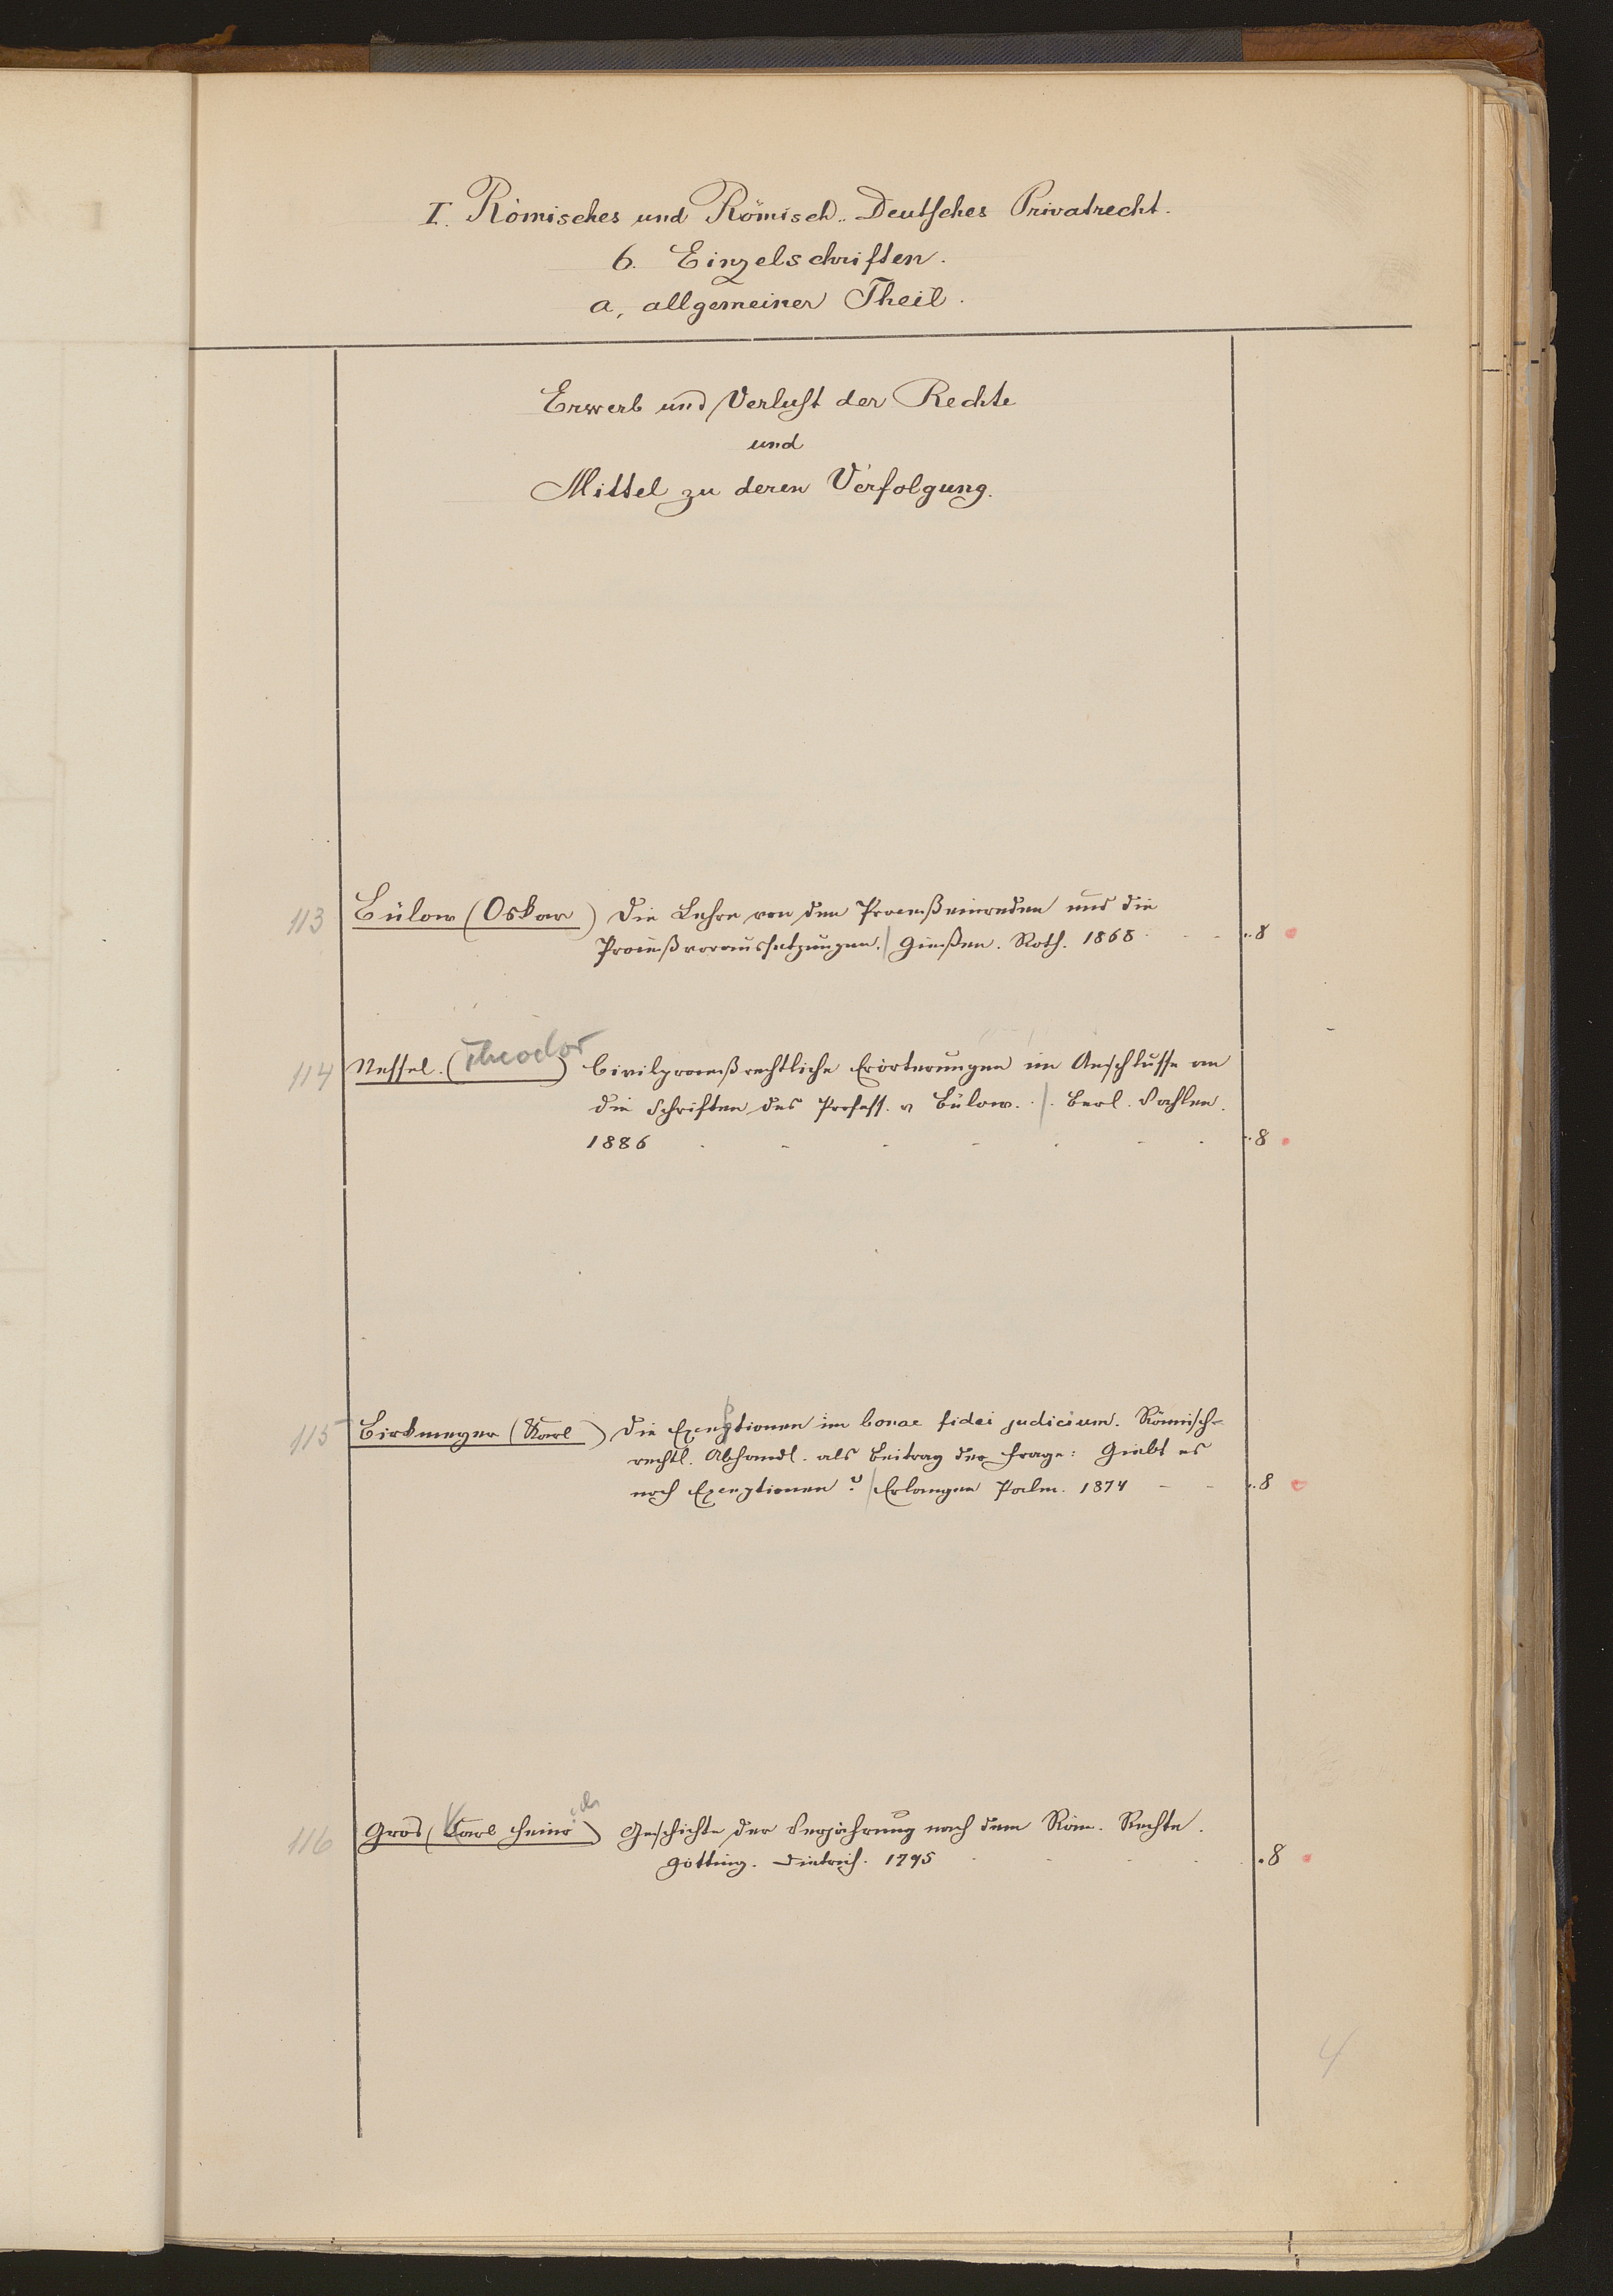 I. Römisches und Römisch-Deutsches Privatrecht.
6. Einzelschriften.
a, allgemeiner Theil.
Erwerb und Verlust der Rechte
und
Mittel zu deren Verfolgung.
113 Bülow (Oskar) Die Lehre von den Proceßeinreden und die
Proceßvoraussetzungen. / Gießen. Roth. 1868 - - ..8
114 Nessel. (Theodor) Civilproceßrechtliche Erörterungen im Anschlusse an
die Schriften des Profess. v Bülow. / Berl. Vahlen.
1886 - - - - - - - ..8
115 Birkmeyer (Karl) Die Exceptionen im bonae fidei judicium. Römisch-
rechtl. Abhandl. als Beitrag der Frage: Giebt es
noch Exceptionen? / Erlangen Palm. 1874 - - ..8
116 Gros (Karl Heinrich) Geschichte der Verjährung nach dem Röm. Rechte.
Götting. Dietrich. 1795 - - - - .8
4